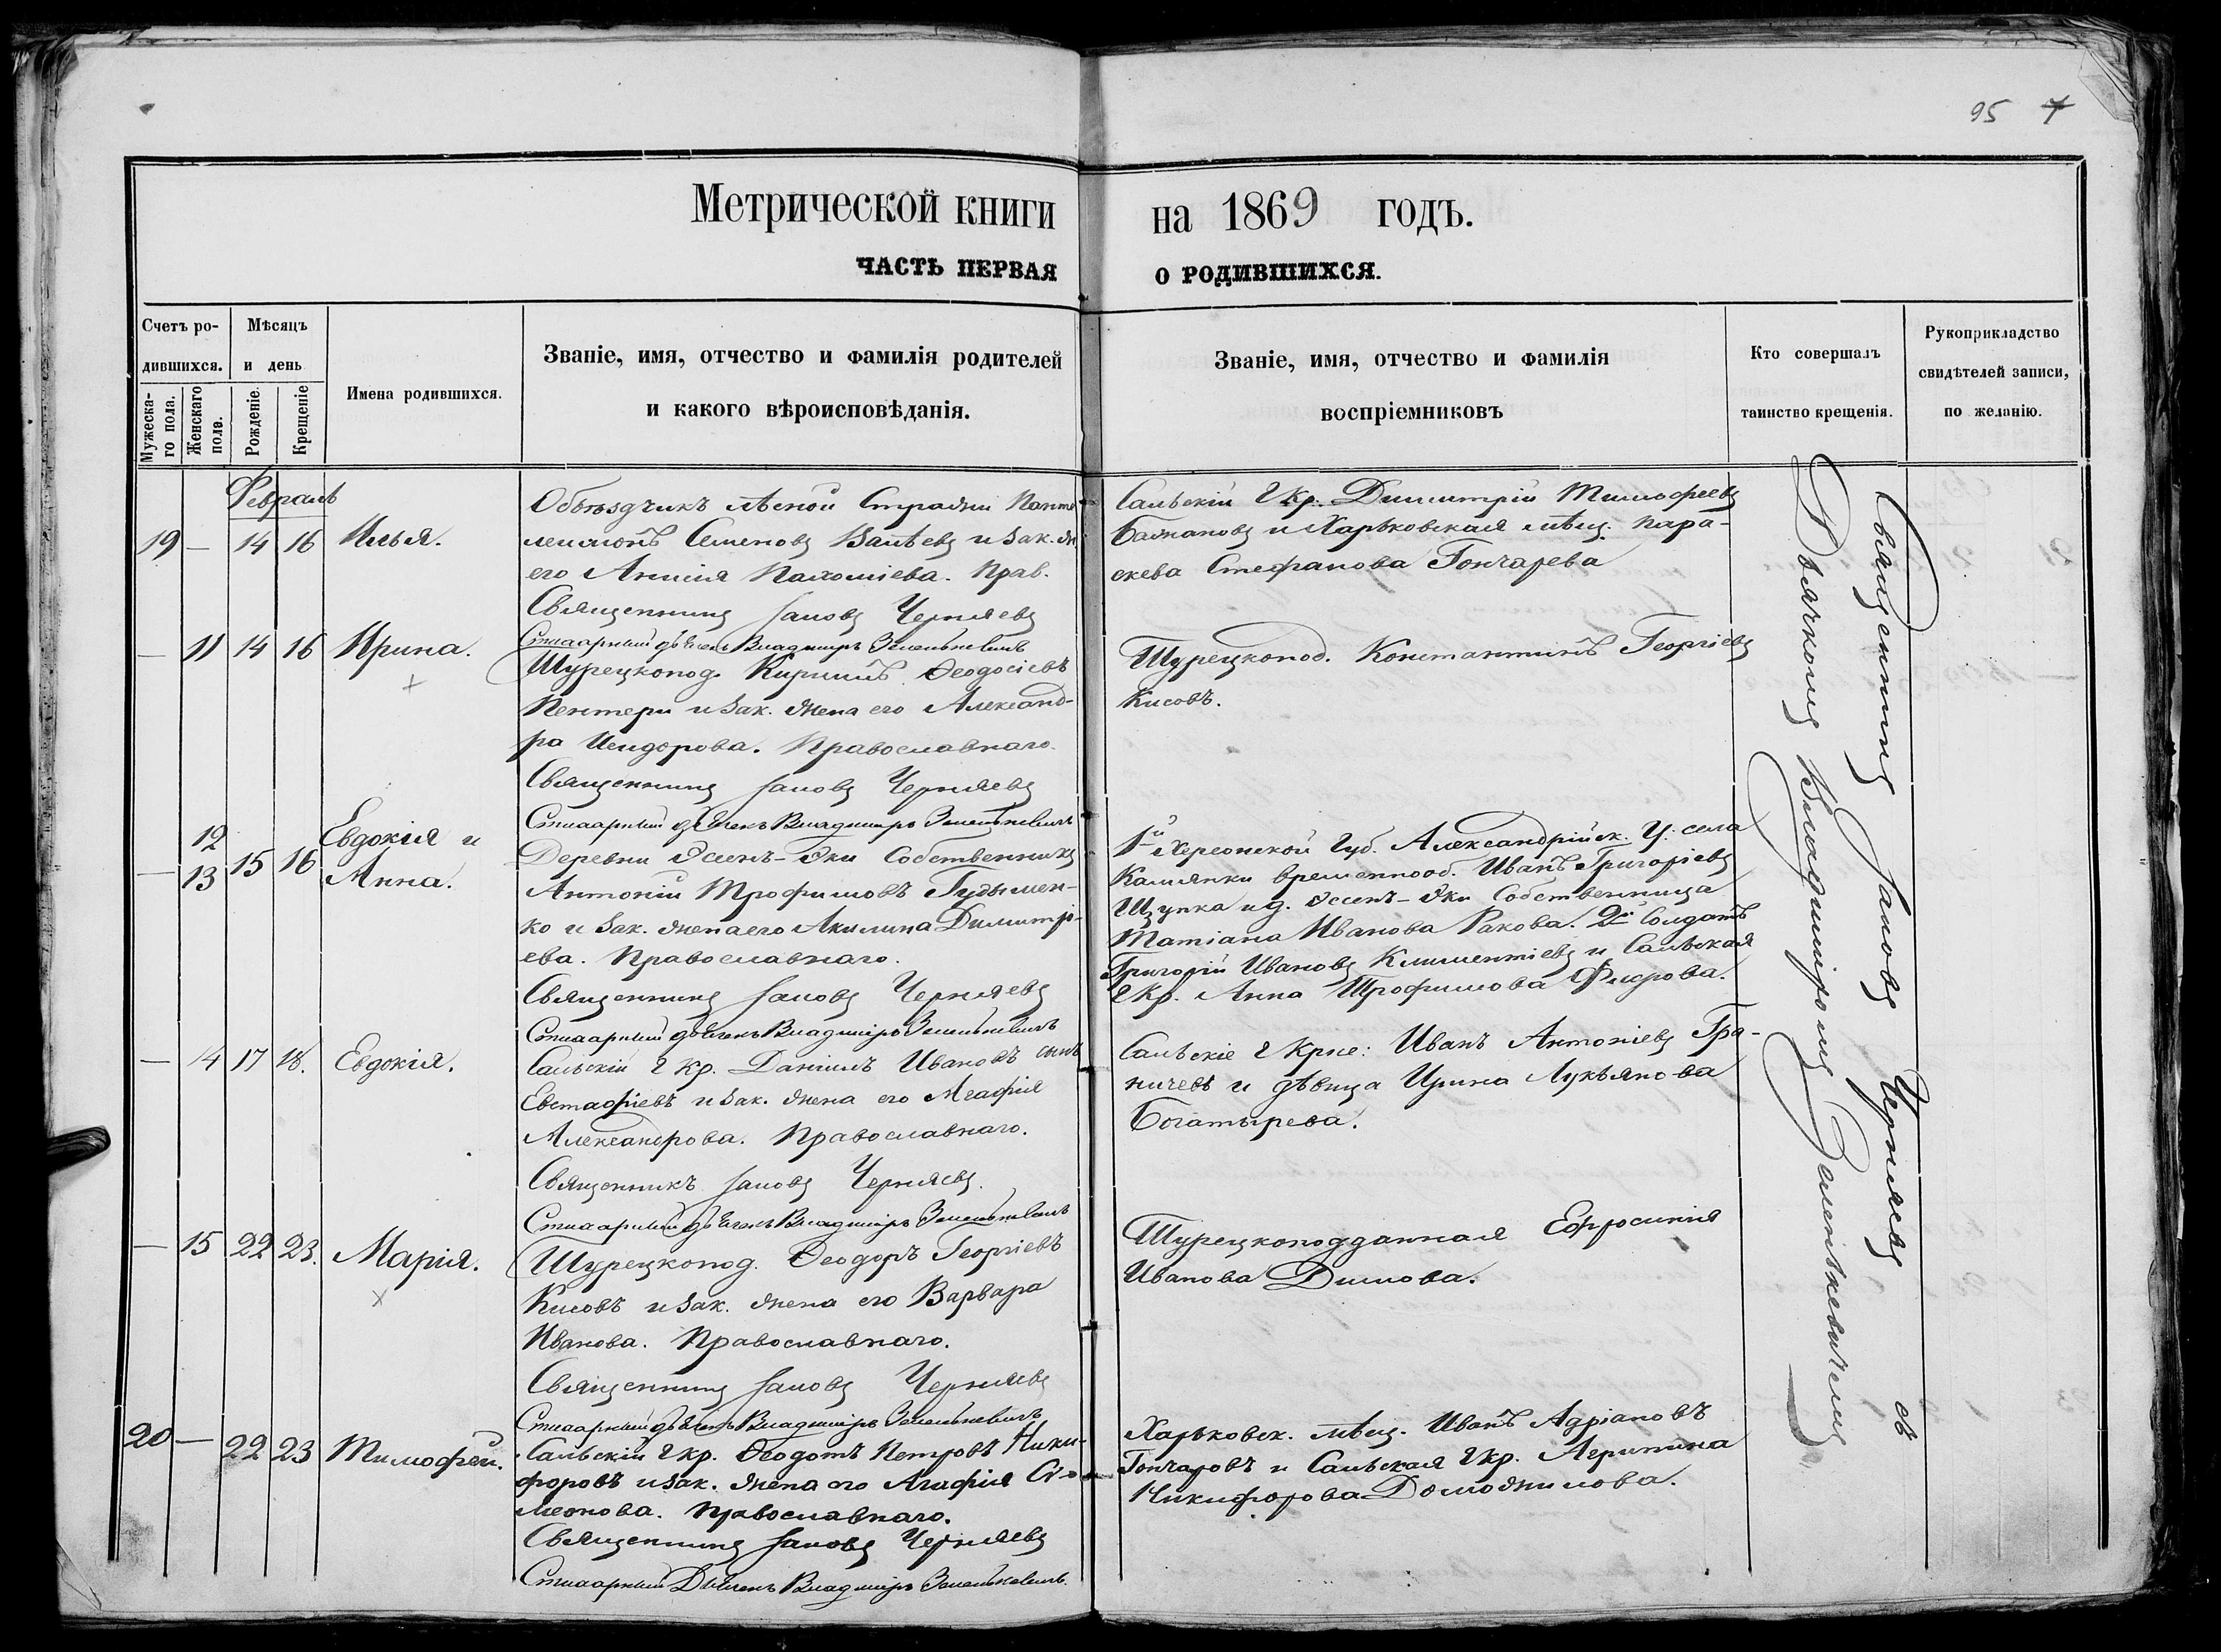 95 7
Метрической книги на 1869 годъ.
ЧАСТЬ ПЕРВАЯ О РОДИВШИХСЯ.
Счетъ ро-
дившихся.
Мужеска-
го пола.
Женскаго
пола.
Мѣсяцъ
и день
Рожденіе.
Крещеніе
Имена родившихся.
Званіе, имя, отчество и фамилія родителей
и какого вѣроисповѣданія.
Званіе, имя, отчество и фамилія
воспріемниковъ
Кто совершалъ
таинство крещенія.
Рукоприкладство
свидѣтелей записи,
по желанію.
Февраль
19 — 14 16 Илья.
Объѣздчикъ лѣсной Стражи Панте
леимонъ Семеновъ и зак. ж
его Анисія Пахоміева. Прав.
Священникъ Іаковъ Черняевъ
Стихарный дьячекъ Владиміръ Зеленкевичъ
Сальскій Г. Кр. Димитрій Тимофеевъ
Бажановъ и Харьковская мѣщ. Пара-
скева Стефанова Гончарева
— 11 14 16 Ирина.
Турецкопод. Кириллъ Ѳеодосіевъ
Пентери и зак. жена его Александ-
ра Исидорова. Православнаго.
Священникъ Іаковъ Черняевъ
Стихарный дьячекъ Владиміръ Зеленкевичъ
Турецкопод. Константинъ Георгіевъ
Кисовъ.
— 12 13 15 16 Евдокія и
Анна.
Деревни Эсенъ-Эки Собственникъ
Антоній Трофимовъ Гудымен-
ко и зак. жена его Акилина Димитрі-
ева. Православнаго.
Священникъ Іаковъ Черняевъ
Стихарный дьячекъ Владиміръ Зеленкевичъ
1й Херсонской Губ. Александрійск. У. села
Камянки временнооб. Иванъ Григоріевъ
Щупка и д. Эсенъ-Эки Собственница
Татіана Иванова Ракова. 2й Солдатъ
Григорій Ивановъ Климентіевъ и Сальская
Г. Кр. Анна Трофимова Фирова.
— 14 17 18. Евдокія.
Сальскій Г. Кр. Даніилъ Ивановъ сынъ
Евстафіевъ и зак. жена его Агафія
Александрова. Православнаго.
Священникъ Іаковъ Черняевъ.
Стихарный дьячекъ Владиміръ Зеленкевичъ
Сальскіе Г. Крне: Иванъ Антоніевъ Гра-
ничевъ и дѣвица Ирина Лукьянова
Богатырева.
— 15 22 23. Марія.
Турецкопод. Ѳеодоръ Георгіевъ
Кисовъ и зак. жена его Варвара
Иванова. Православнаго.
Священникъ Іаковъ Черняевъ
Стихарный дьячекъ Владиміръ Зеленкевичъ
Турецкоподданная Ефросинія
Иванова Димова.
20 — 22 23 Тимофей.
Сальскій Г. Кр. Ѳеодотъ Петровъ Ники-
форовъ и зак. жена его Агафія Си-
меонова. Православнаго.
Священникъ Іаковъ Черняевъ
Стихарный Дьячекъ Владиміръ Зеленкевичъ.
Харьковск. мѣщ. Иванъ Адріановъ
Гончаровъ и Сальская Г. Кр. Агрипина
Никифорова Доможилова.
Священникъ Іаковъ Черняевъ съ
Дьячкомъ Владиміромъ Зеленкевичемъ